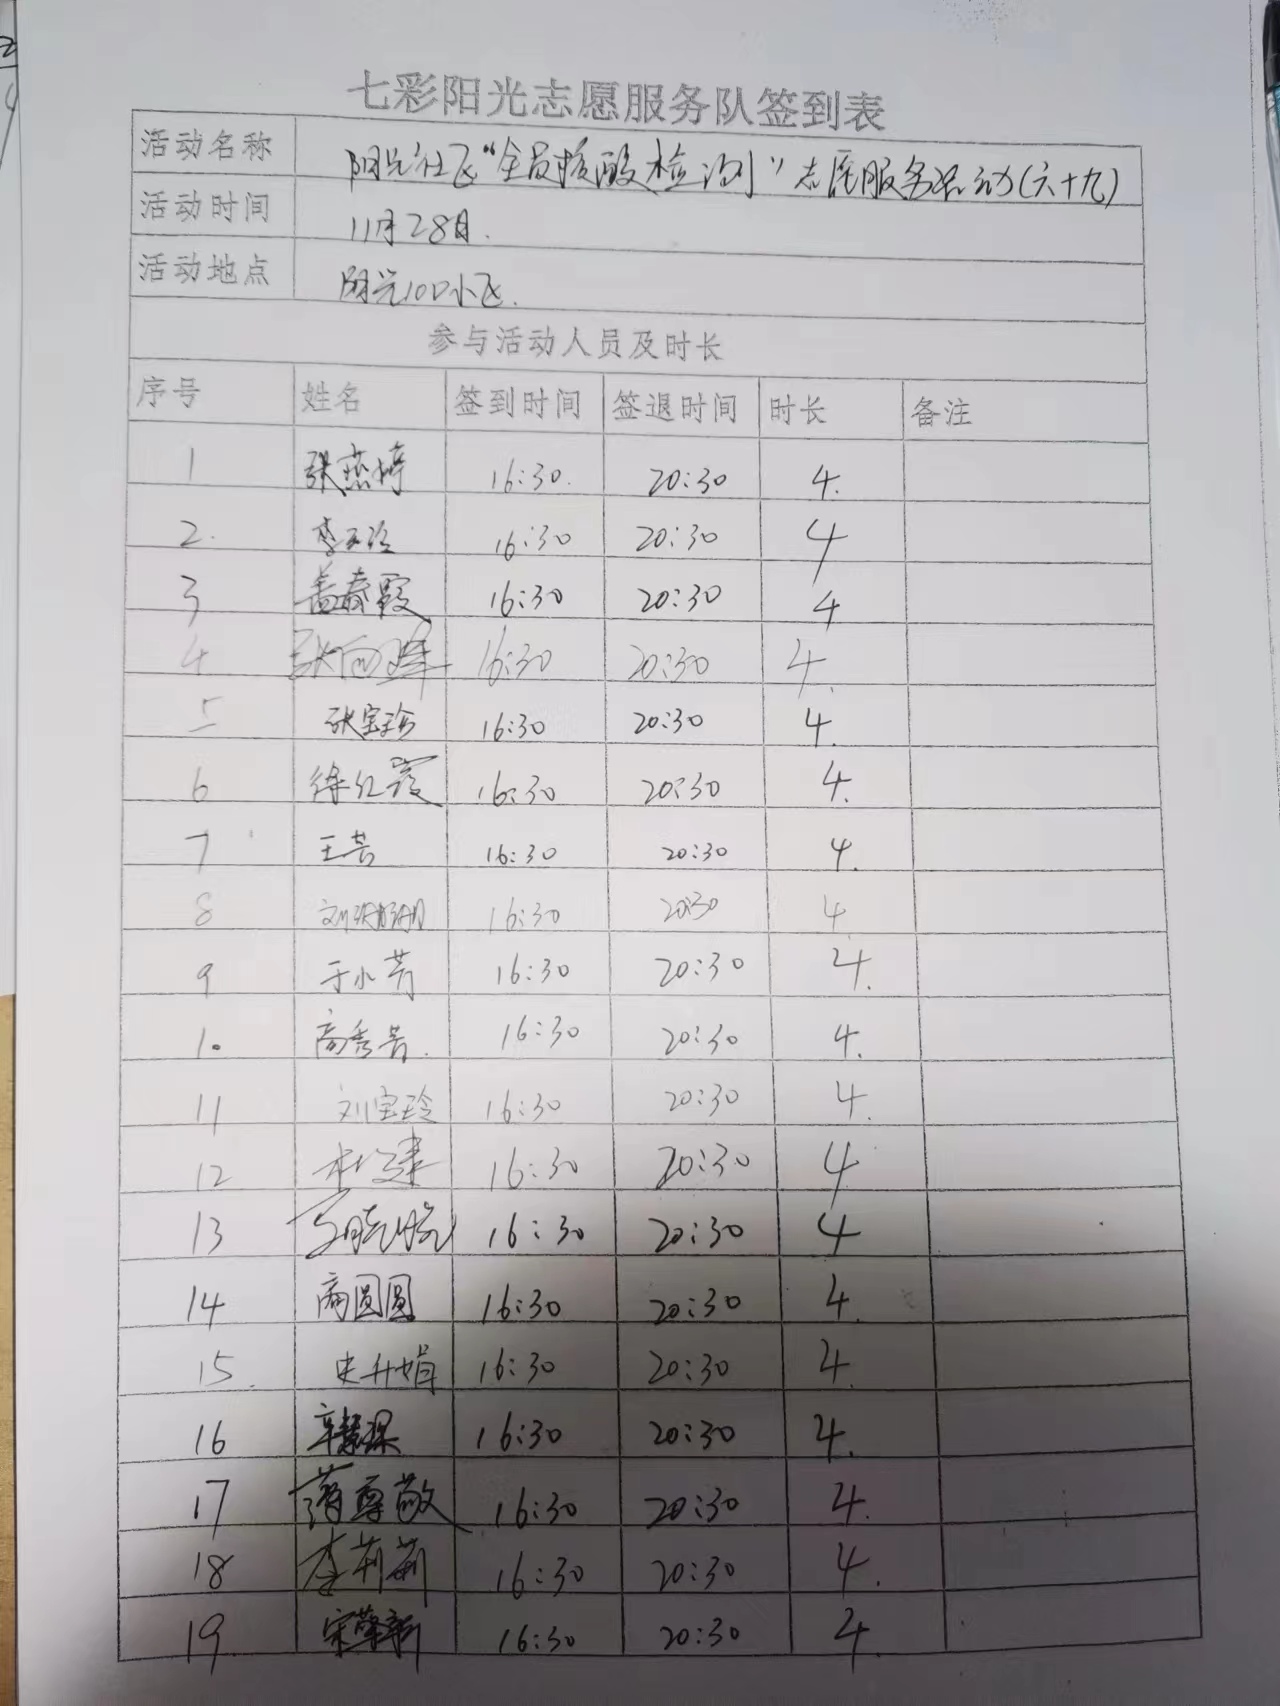 七彩阳光志愿服务队签到表
活动名称 阳光社区“全员核酸检测”志愿服务活动(六十九)
活动时间 11月28日.
活动地点 阳光100小区.
参与活动人员及时长
序号 姓名 签到时间 签退时间 时长 备注
1 张燕婷 16:30. 20:30 4.
2. 李玉玲 16:30 20:30 4
3 盖春霞 16:30 20:30 4
4 16:30 20:30 4.
5 张宝珍 16:30 20:30 4.
6 徐红霞 16:30 20:30 4.
7 王芸 16:30 20:30 4.
8 16:30 20:30 4.
9 于小芳 16:30 20:30 4.
10 高秀芳. 16:30 20:30 4.
11 刘宝玲 16:30 20:30 4.
12 杜建 16:30 20:30 4
13 16:30 20:30 4
14 商圆圆 16:30 20:30 4.
15. 史升娟 16:30 20:30 4.
16 辛慧琛 16:30 20:30 4.
17 蒋尊敬 16:30 20:30 4.
18 李莉莉 16:30 20:30 4.
19. 16:30 20:30 4.